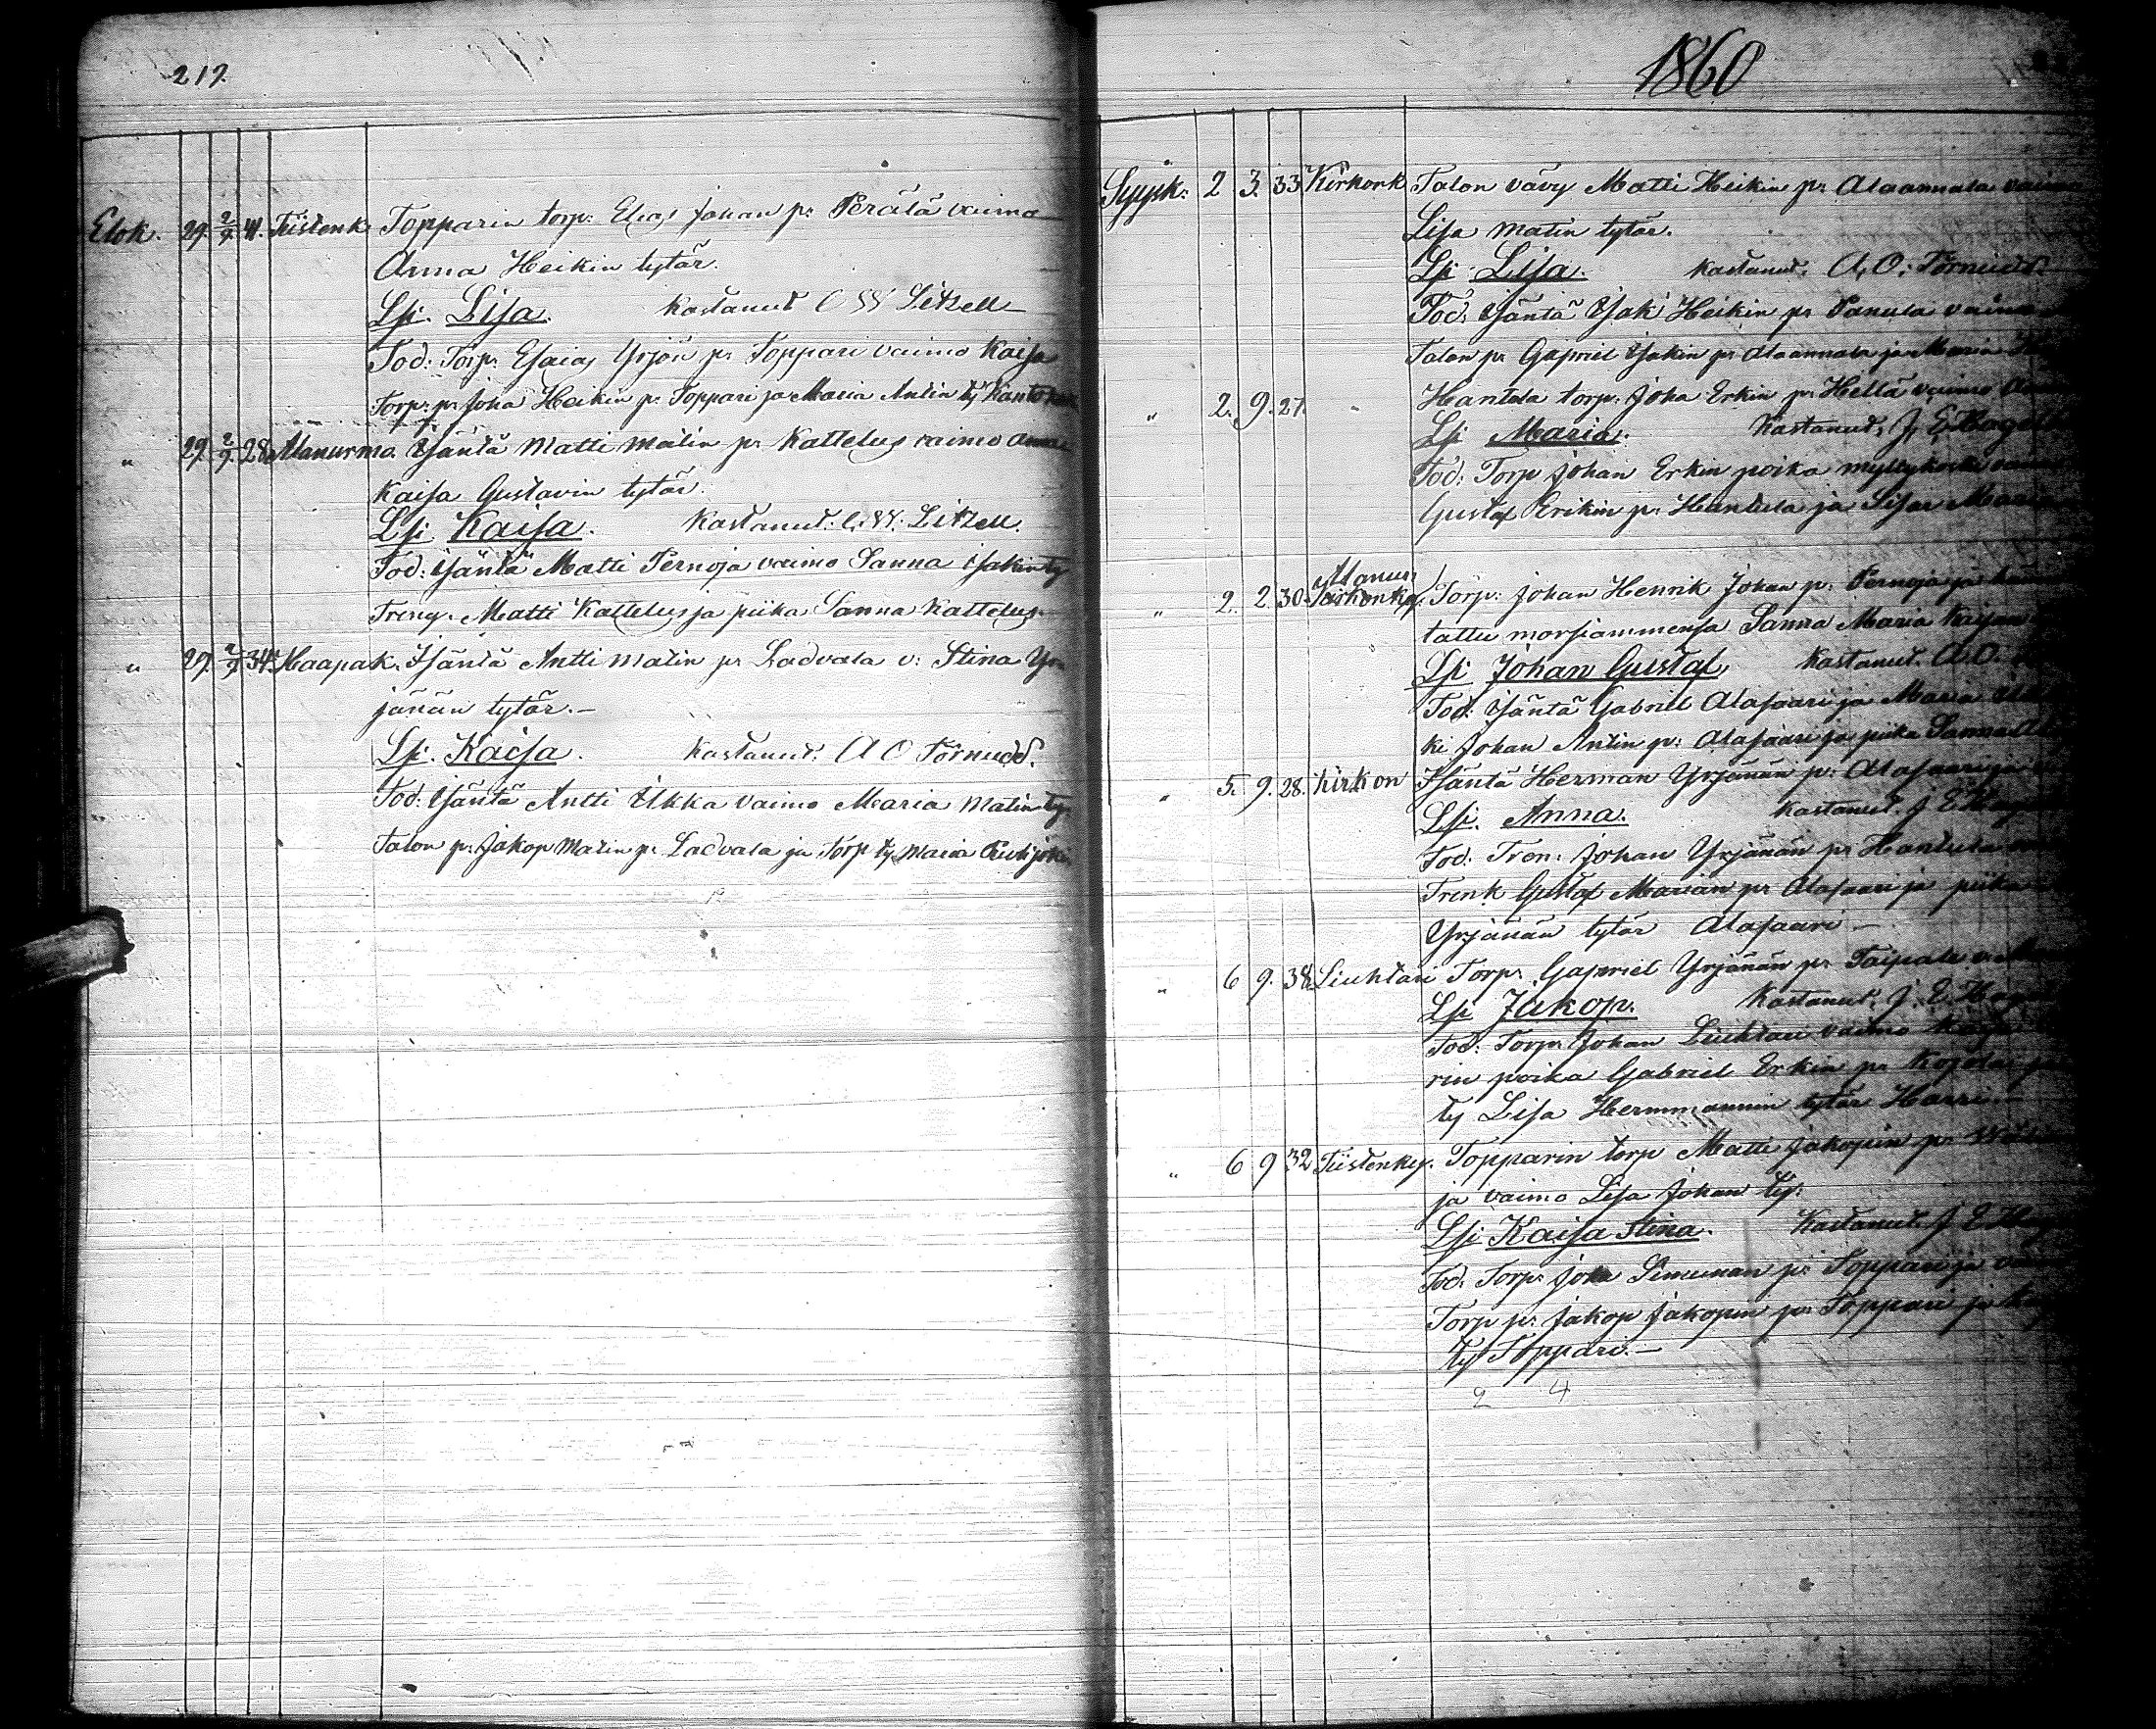 217.
Elok. 29. 2/9. 41. Tiistenk. Topparin torp: Elias Johan p: Perälä vaimo
Anna Heikin tytär.
Lsi. Lisa. Kastanut C W Litzell
Tod: Torp: Esaias Yrjön p: Toppari vaimo Kaisa
Torp: p: Joha Heikin p: Toppari ja Maria Antin ty
" 29. 2/9. 28. Alanurmo. Isäntä Matti Matin p: Kattelus vaimo Anna
Kaisa Gustavin tytär.
Lsi Kaisa. Kastanut: C. W. Litzell.
Tod: Isäntä Matti Pernoja vaimo Sanna Isakin ty
Treng. Matti Kattelus ja piika Sanna Kattelus.
" 29. 2/9. 34. Haapak. Isäntä Antti Matin p: Ladvala v: Stina Yr
jänän tytär. —
Lsi. Kaisa. Kastanut. A O Törnudd.
Tod: Isäntä Antti Ukka vaimo Maria Matin ty.
Talon p: Jakop Matin p: Ladvala ja Torp ty Maria
1860
Syysk: 2 3. 33 Kirkonk Talon vävy Matti Heikin p: Alaannala vaimo
Lisa Matin tytär.
Lsi Lisa. Kastanut. A, O: Törnudd.
Tod: Isäntä Isak Heikin p: Panula vaimo
Talon p: Gapriel Isakin p: Alaannala ja Maria
" 2. 9. 27. " Hantula torp: Joha Erkin p: Hellä vaimo
Lsi Maria. Kastanut, J, E Hagel
Tod: Torp Johan Erkin poika Myllykoski
Gustaf Erikin p: Hantula ja Lisa Maria
" 2. 2. 30. Alanur, Torp: Johan Henrik Johan p: Pernoja ja
tattu morsiammensa Sanna Maria Kaijan
Lsi Johan Gustaf, Kastanut. A. O.
Tod: Isäntä Gabriel Alasaari ja Maria
ki Johan Antin p: Alasaari ja piika Sanna
" 5. 9. 28. Kirkon Isäntä Herman Yrjänän p: Alasaari
Lsi. Anna. Kastanut. J E
Tod. Tren: Johan Yrjänän p: Hantula
Trenk Gustaf Marian p: Alasaari ja piika
Yrjänän tytär Alasaari —
" 6 9. 38. Liuhtari Torp: Gapriel Yrjänän p: Taipale v:
Lsi Jakop. Kastanut. J. E. Hagel
Tod: Torp: Johan Liuhtari vaimo
rin poika Gabriel Erkin p: Kojola
ty Lisa Hermmannin tytär Harri —
" 6 9 32 Tiistenky. Topparin torp Matti Jakopin p:
ja vaimo Lisa Johan ty:
Lsi Kaisa Stina. Kastanut. J E
Tod. Torp: Joha Simunan p: Toppari ja
Torp p: Jakop Jakopin p: Toppari ja
ty Toppari. —
2 4